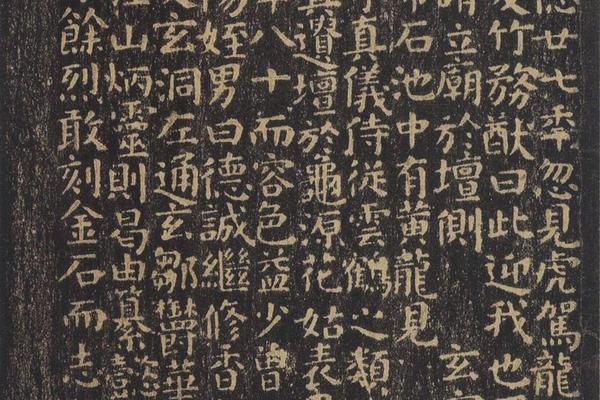 廿七秊忽見虎駕龍
竹務猷曰此迎我也
立廟於壇側 玄
石池中有黃龍見
真儀侍従雲鶴之類
遺壇於龜源花姑表
八十而容色益少曾
姪男曰德誠繼修香
玄洞左通玄鄒鬱華
山炳靈則曷由纂懿
餘烈敢刻金石而志